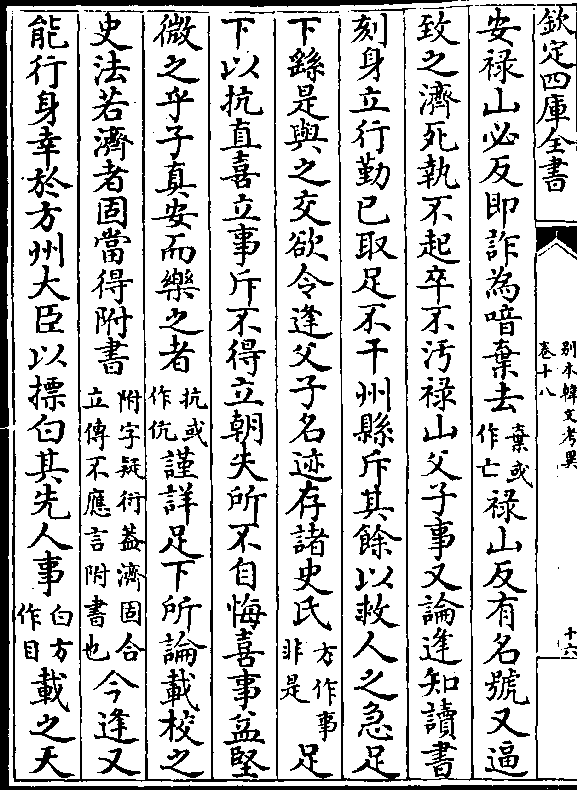 欽定四庫全書
別本韓文考異
卷十八
十六
安禄山必反即詐為喑棄去棄或作亡禄山反有名號又逼
致之濟死執不起卒不汚禄山父子事又論逢知讀書
刻身立行勤已取足不干州縣斥其餘以救人之急足
下繇是與之交欲令逢父子名迹存諸史氏方作事非是足
下以抗直喜立事斥不得立朝失所不自悔喜事益堅
微之乎子真安而樂之者抗或作伉謹詳足下所論載校之
史法若濟者固當得附書附字疑衍蓋濟固合立傳不應言附書也今逢又
能行身幸於方州大臣以摽白其先人事白方作目載之天